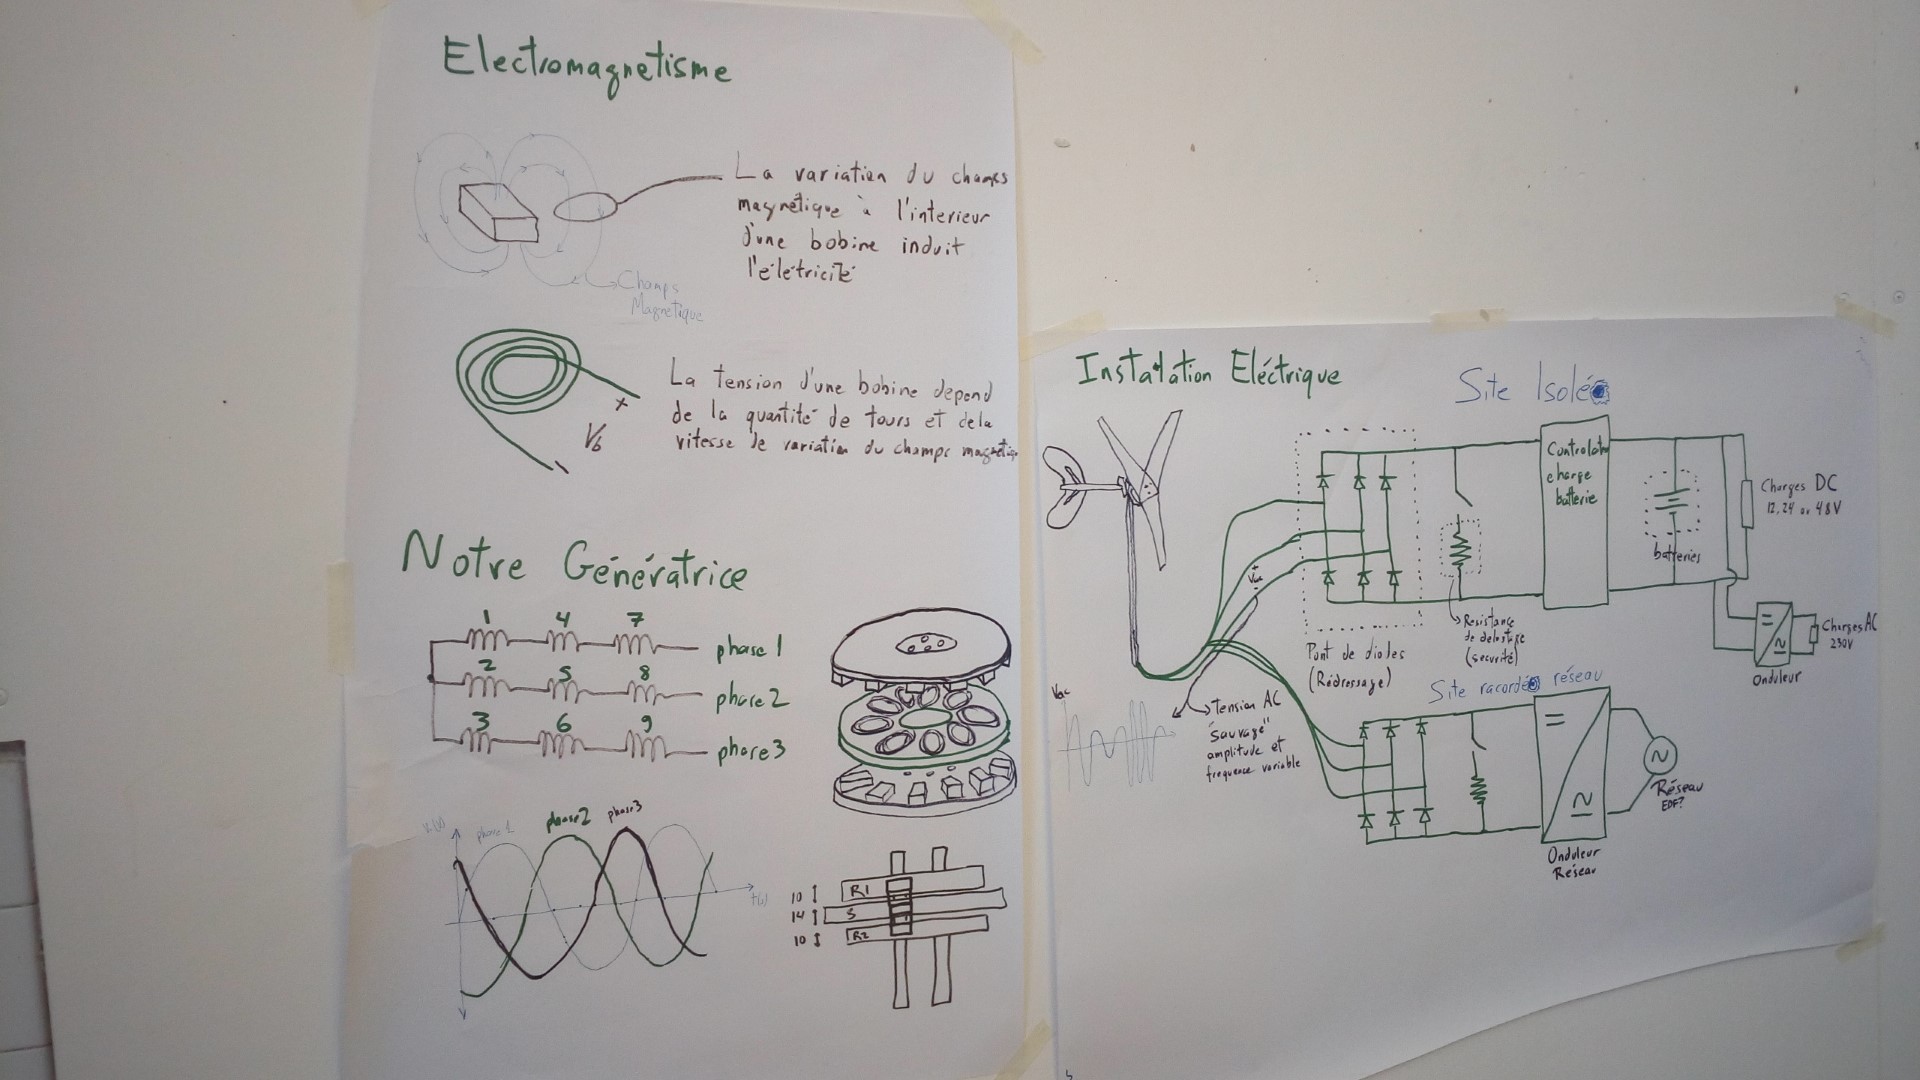 Electromagnetisme
La variation du champs
magnétique à l'interieur
d'une bobine induit
l'élétricité
Champs
Magnetique
La tension d'une bobine depend
de la quantité de tours et dela
vitesse de variation du champs magnetique
+
Vb
-
Notre Génératrice
1 4 7
phase 1
2 5 8
phase 2
3 6 9
phase 3
phase 1 phase2 phase3
t(s)
10 R1
14 S
10 R2
Instalation Eléctrique
Site Isolé
Controlateur
charge
batterie
Charges DC
12, 24 ou 48V
batteries
+
Vac
-
Resistance
de delestage
(securité)
Charges AC
230V
Onduleur
Pont de diodes
(Redressage)
Site racordé réseau
Vac
Tension AC
"sauvage"
amplitude et
frequence variable
Réseau
EDF?
Onduleur
Réseau